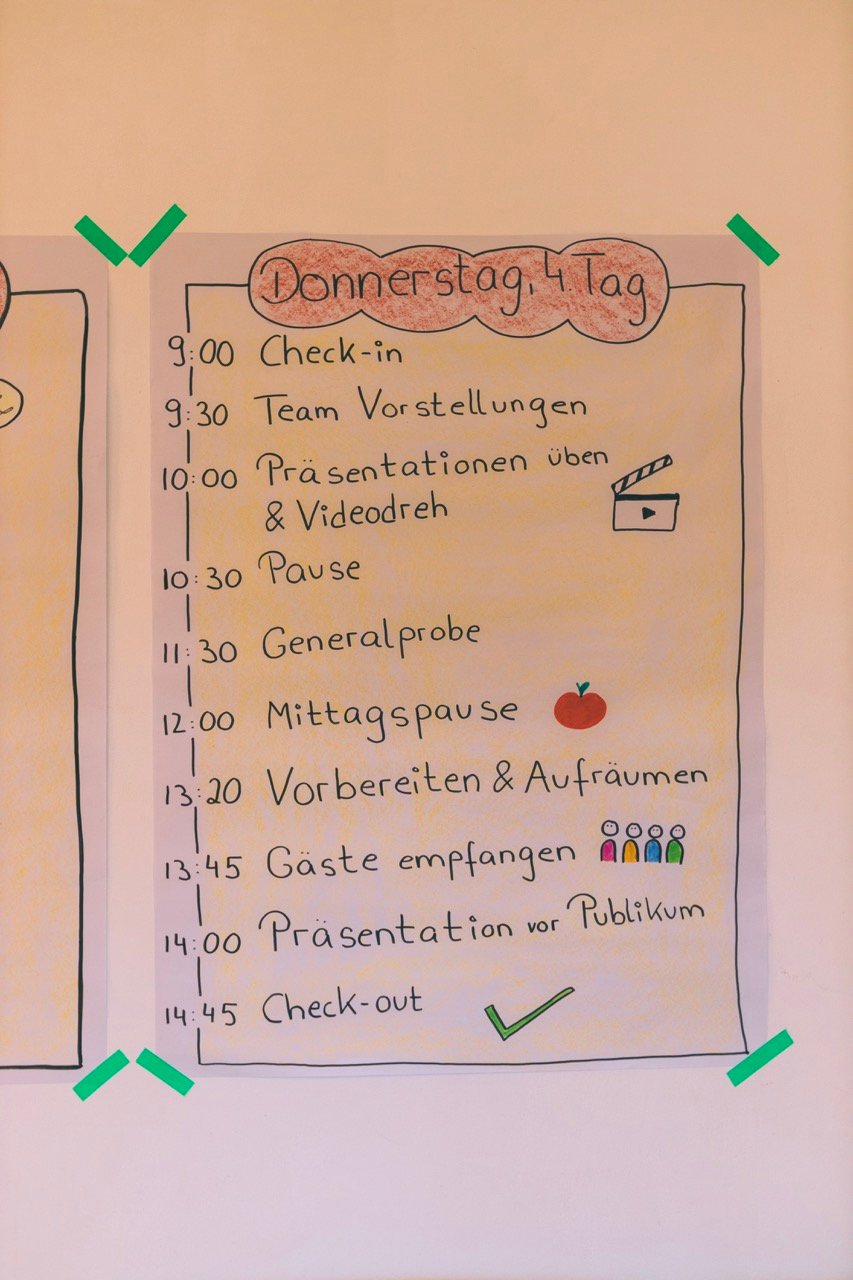 Donnerstag, 4 Tag
9:00 Check-in
9:30 Team Vorstellungen
10:00 Präsentationen üben
& Videodreh
10:30 Pause
11:30 Generalprobe
12:00 Mittagspause
13:20 Vorbereiten & Aufräumen
13:45 Gäste empfangen
14:00 Präsentation vor Publikum
14:45 Check-out